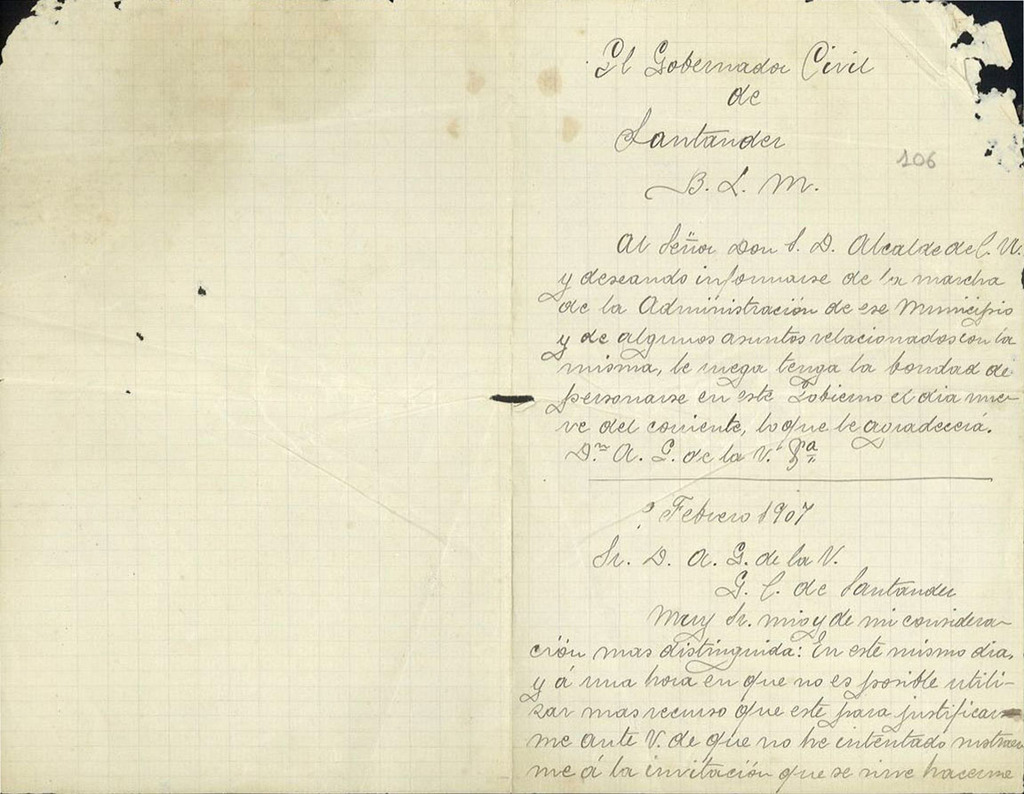 El Gobernador Civil
de
Santander
106
B. L. M.
Al Señor Don S. D. Alcalde del C. U.
y deseando informarse de la marcha
de la Administración de ese Municipio
y de algunos asuntos relacionados con la
misma, le ruega tenga la bondad de
personarse en este Gobierno el dia nue-
ve del corriente, lo que le agradecerá.
D.n A. G. de la V.
Febrero 1907
Sr. D. A. G. de la V.
G. C. de Santander
Muy Sr. mio y de mi considera-
ción mas distinguida: En este mismo dia,
y á una hora en que no es posible utili-
zar mas recurso que este para justificar-
me ante V. de que no he intentado
me á la invitación que se sirve hacerme